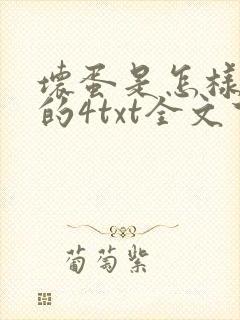 壞蛋是怎樣
的4txt全文
葡萄紫